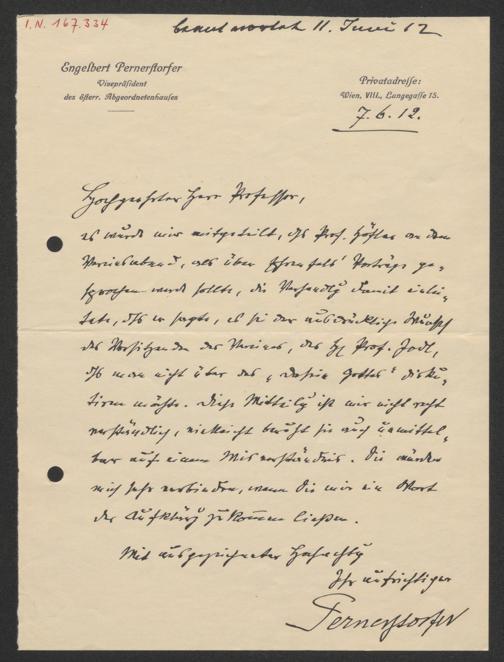 I.N. 167.334
beantwortet 11. Juni 12
Engelbert Pernerstorfer
Vizepräsident
des österr. Abgeordnetenhauses
Privatadresse:
Wien, VIII., Langegasse 15.
7.6.12.
Hochgeehrter Herr Professor,
es wurde mir mitgeteilt, dß Prof. Höfler an dem
Vereinsabend, als über Ehrenfels' Vorträge ge-
sprochen werden sollte, die Verhandlg damit einlei-
tete, dß er sagte, es sei der ausdrückliche Wunsch
des Vorsitzenden des Vereines, des H Prof. Jodl,
dß man nicht über das „Dasein Gottes" disku-
tieren möchte. Diese Mitteilg ist mir nicht recht
verständlich, vielleicht beruht sie auch
auf einem Misverständnis. Sie würden
mich sehr verbinden, wenn Sie mir ein Wort
der Aufklärg zukommen ließen.
Mit ausgezeichneter Hochachtg
Ihr aufrichtiger
Pernerstorfer